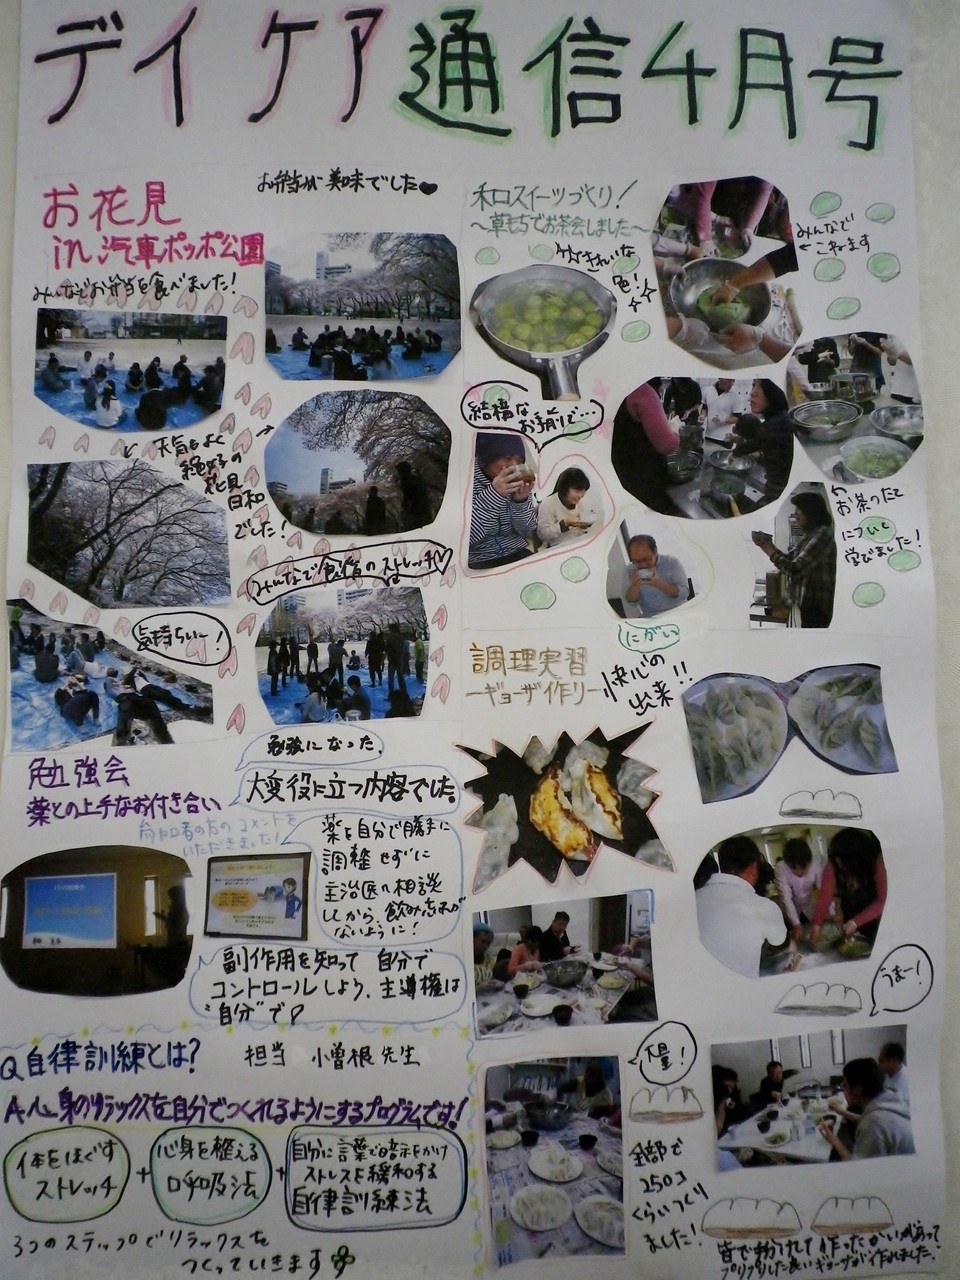 デイケア通信4月号
お花見
in 汽車ポッポ公園
お弁当が美味でした♥
みんなでお弁当を食べました!
天気もよく
絶好の
花見
日和
でした!
みんなで食後のストレッチ♡
気持ちいー!
和スイーツづくり!
～草もちでお茶会しました～
きれいな
色!
みんなで
こねます
結構な
お手前で…
お茶のたて
について
学びました!
にがい
調理実習
ーギョーザ作りー
快心の
出来!!
うまー!
大量!
全部で
250コ
くらいつくり
ました!
皆で手分けして作ったかいがあって
プリプリした良いギョーザが作れました!
勉強会
薬との上手なお付き合い
参加者の方のコメントを
いただきました!
勉強になった。
大変役に立つ内容でした。
薬を自分で勝手に
調整せずに
主治医に相談
してから、飲み忘れが
ないように!
副作用を知って自分で
コントロールしよう、主導権は
"自分"で♪
Q自律訓練とは?
担当 小曽根先生
A.心身のリラックスを自分でつくれるようにするプログラムです!
体をほぐす
ストレッチ
+
心身を整える
呼吸法
+
自分に言葉で暗示をかけ
ストレスを緩和する
自律訓練法
3つのステップでリラックスを
つくっていきます